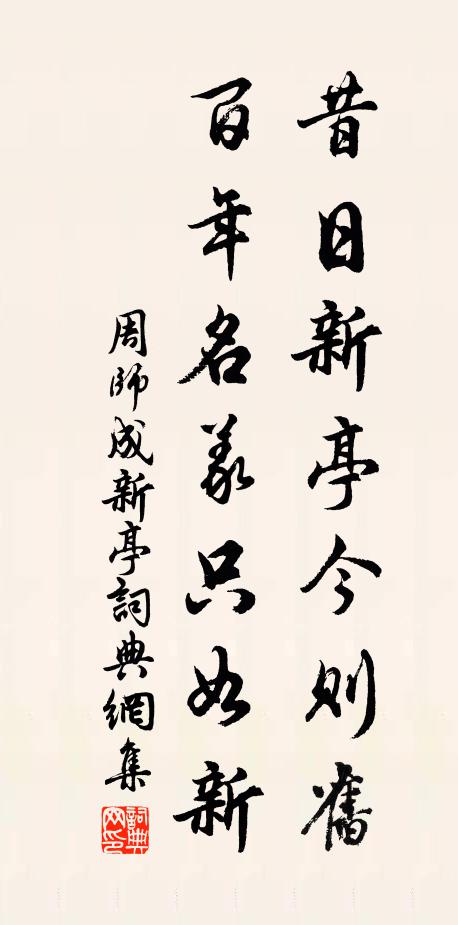 昔日新亭今则舊
百年名義只如新
周師成新亭詞典網集
詞典网印